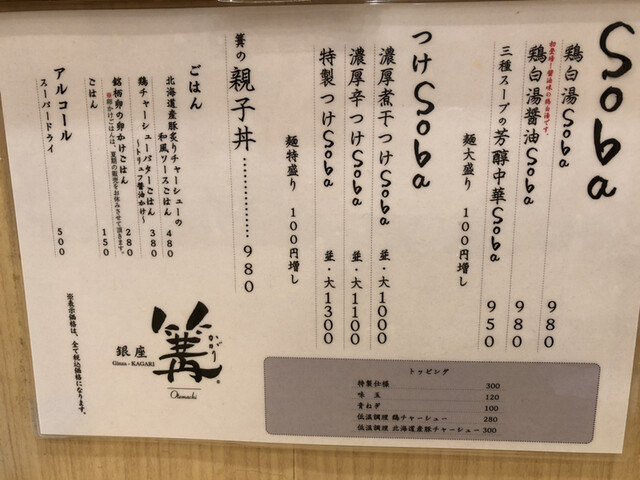 Soba
鶏白湯Soba 980
初登場!醤油味の鶏白湯です。
鶏白湯醤油Soba 980
三種スープの芳醇中華Soba 950
麺大盛り 100円増し
つけSoba
濃厚煮干つけSoba 並・大1000
濃厚辛つけSoba 並・大1100
特製つけSoba 並・大1300
麺特盛り 100円増し
篝の親子丼……………980
ごはん
北海道産豚炙りチャーシューの
和風ソースごはん 480
鶏チャーシューバターごはん
～トリュフ醤油かけ～ 380
銘柄卵の卵かけごはん 280
※卵かけごはんは、夏場の販売をお休みさせて頂きます。
ごはん 150
アルコール
スーパードライ 500
※表示価格は、全て税込価格になります。
銀座
Ginza - KAGARI
篝
かがり
Otemachi
トッピング
特製仕様 300
味玉 120
青ねぎ 100
低温調理 鶏チャーシュー 280
低温調理 北海道産豚チャーシュー 300